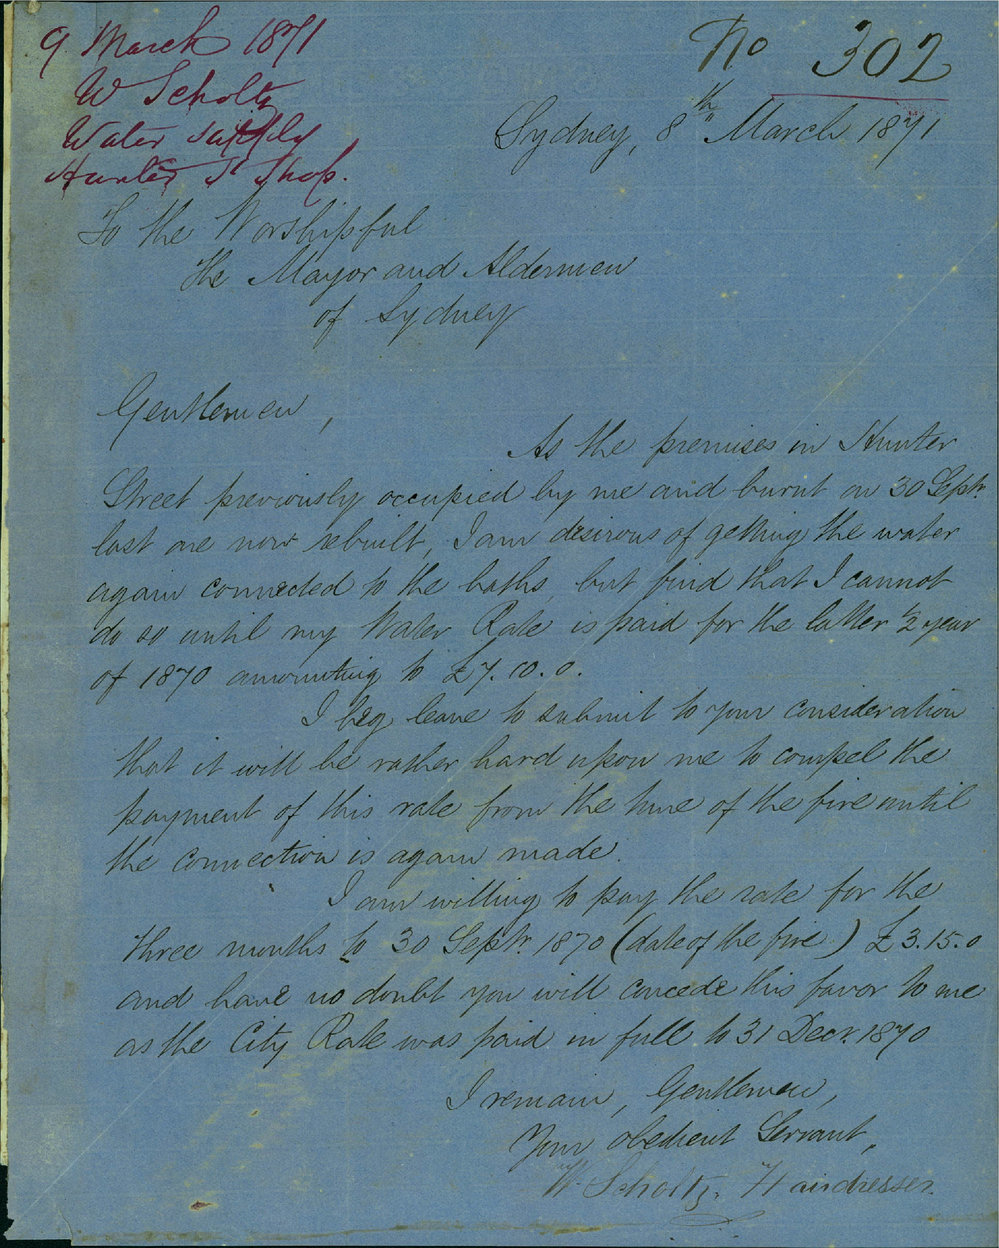 9 March 1871
W Scholtz
Water supply
Hunter St Shop.
No 302
Sydney, 8th March 1871
To the Worshipful
the Mayor and Aldermen
of Sydney
Gentlemen,
As the premises in Hunter
Street previously occupied by me and burnt on 30 Septr.
last are now rebuilt, I am desirous of getting the water
again connected to the baths, but find that I cannot
do so until my Water Rate is paid for the latter ½ year
of 1870 amounting to £7.10.0.
I beg leave to submit to your consideration
that it will be rather hard upon me to compel the
payment of this rate from the time of the fire until
the connection is again made.
I am willing to pay the rate for the
three months to 30 Septr. 1870 (date of the fire) £3.15.0
and have no doubt you will concede this favor to me
as the City Rate was paid in full to 31 Decr. 1870
I remain, Gentlemen,
Your obedient Servant,
W. Scholtz. Hairdresser.